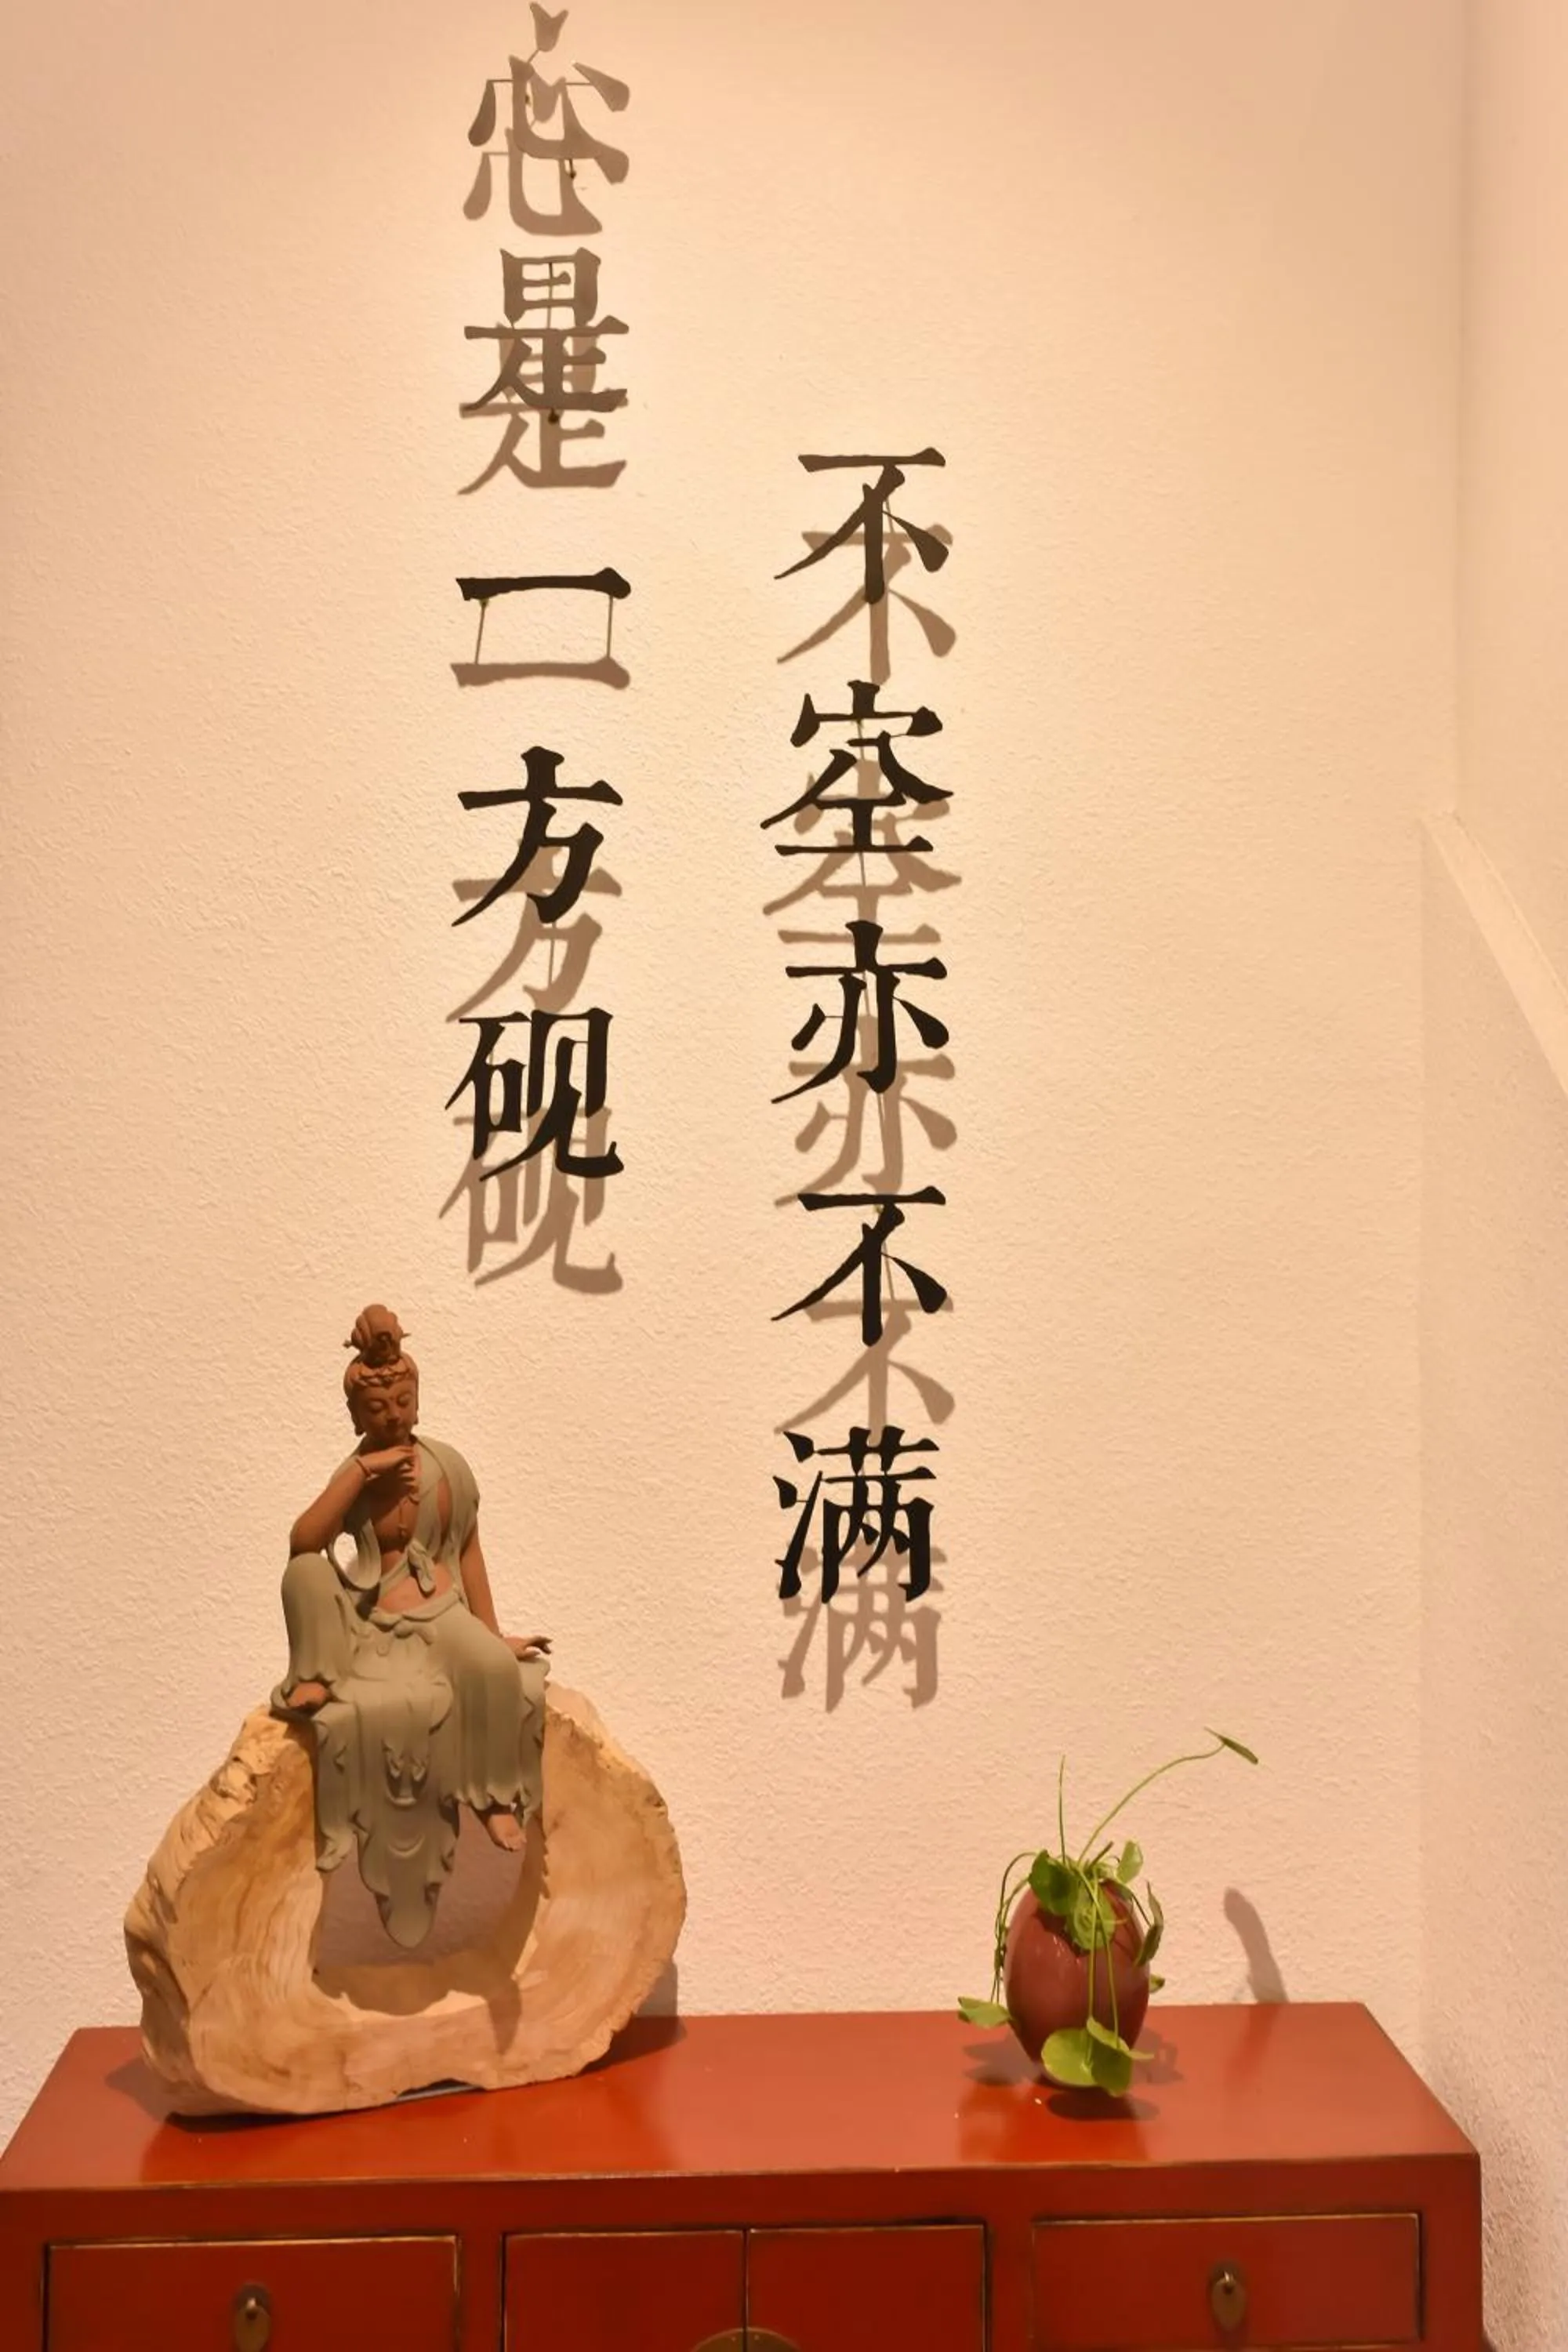 心是一方砚
不空亦不满